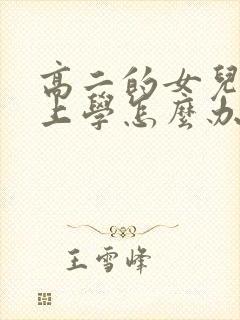 高二的女兒
上學怎麼办
王雪峰